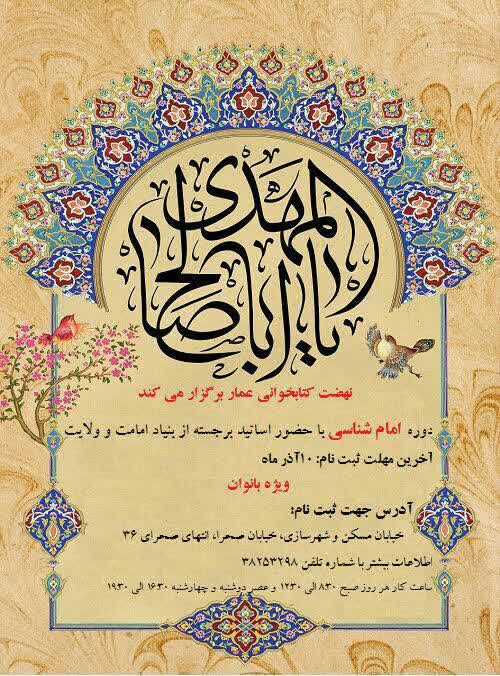 یا اباصالح المهدی
نهضت کتابخوانی عمار برگزار می کند
دوره امام شناسی با حضور اساتید برجسته از بنیاد امامت و ولایت
آخرین مهلت ثبت نام: ۱۰آذر ماه
ویژه بانوان
آدرس جهت ثبت نام:
خیابان مسکن و شهرسازی، خیابان صحرا، انتهای صحرای ۳۶
اطلاعات بیشتر با شماره تلفن ۳۸۲۵۳۲۹۸
ساعت کار هر روز صبح ۸:۳۰ الی ۱۲:۳۰ و عصر دوشنبه و چهارشنبه ۱۶:۳۰ الی ۱۹:۳۰